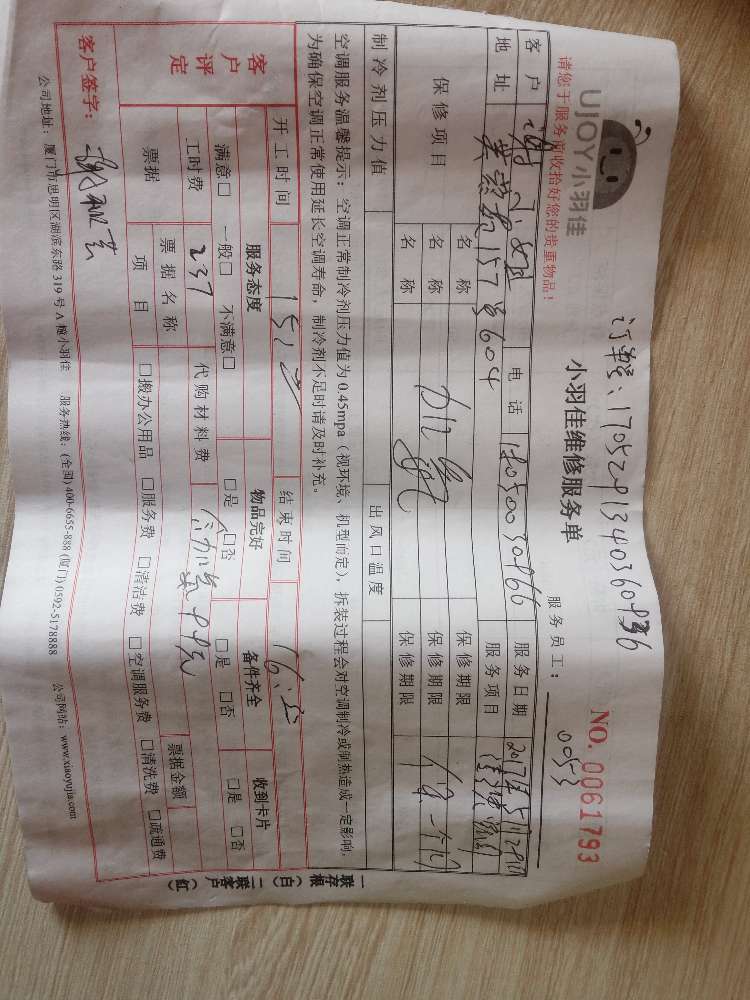 订单号:17052913403609336
UJOY小羽佳
小羽佳维修服务单
NO. 0061793
请您于服务前收拾好您的贵重物品!
服务员工: 0053
客户 谢小姐 电话 18050030966 服务日期 2017年5月29日
地址 157号604 服务项目
保修项目 名称 保修期限
名称 保修期限
名称 保修期限
制冷剂压力值 出风口温度
空调服务温馨提示:空调正常制冷剂压力值为0.45mpa(视环境、机型而定),拆装过程会对空调制冷或制热造成一定影响,
为确保空调正常使用延长空调寿命,制冷剂不足时请及时补充。
开工时间 结束时间
客户评定 服务态度 物品完好 备件齐全 收到卡片
满意□ 一般□ 不满意□ □是 □否 □是 □否 □是 □否
工时费 237 代购材料费
票据 票据名称 票据金额
项目 □搬办公用品 □服务费 □清洁费 □空调服务费 □清洗费 □疏通费
客户签字:
公司地址:厦门市思明区湖滨东路319号A幢小羽佳 服务热线:(全国)400-6655-888 (厦门)0592-5178888 公司网站:www.xiaoyujia.com
一联存根(白) 二联客户(红)